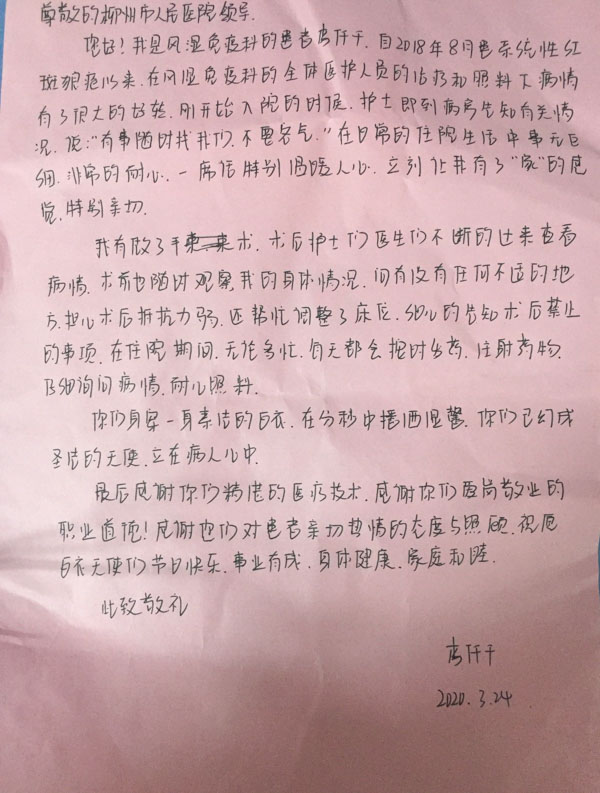 尊敬的柳州市人民医院领导.
您好!我是风湿免疫科的患者 自2018年8月患系统性红
斑狼疮以来.在风湿免疫科的全体医护人员的治疗和照料下病情
有了很大的好转.刚开始入院的时候.护士即到病房告知有关情
况.说:"有事随时找我们.不要客气."在日常的住院生活中事无巨
细.非常的耐心.一席话特别温暖人心.立刻让我有了"家"的感
觉,特别亲切.
我有做了手术.术后护士们医生们不断的过来查看
病情.术前也随时观察我的身体情况.问有没有任何不适的地
方.担心术后抵抗力弱.还帮忙调整了床位.细心的告知术后禁止
的事项.在住院期间.无论多忙.每天都会按时发药.注射药物.
仔细询问病情.耐心照料.
你们身穿一身素洁的白衣.在分秒中播洒温馨.你们已幻成
圣洁的天使.立在病人心中.
最后感谢你们精湛的医疗技术.感谢你们爱岗敬业的
职业道德!感谢你们对患者亲切热情的态度与照顾.祝愿
白衣天使们节日快乐.事业有成.身体健康.家庭和睦.
此致敬礼
2020.3.24